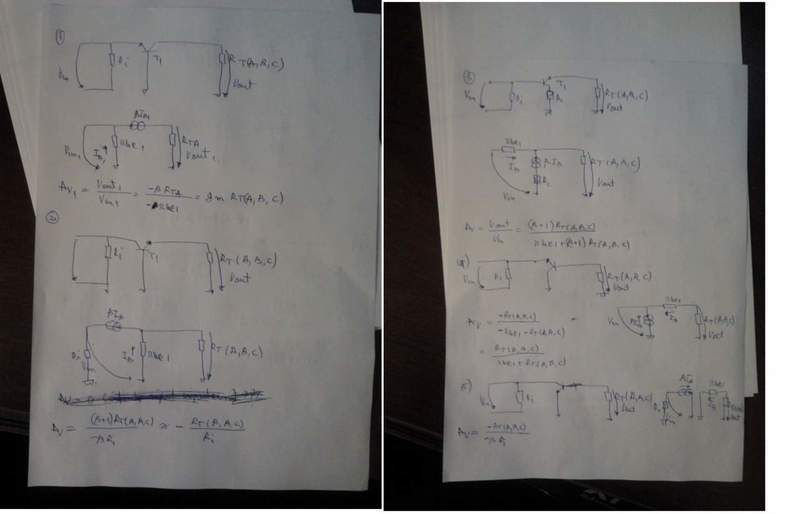 ①
Ri
T1
RT(A,B,C)
Vin
Vout
βIB1
Vin1
IB1
rbe1
RTA
Vout1
Av1 = Vout1 / Vin1 = -β RTA / -rbe1 = gm RT(A,B,C)
②
Ri
T1
RT(A,B,C)
Vout
βIB
Ri
IB
rbe1
RT(A,B,C)
Av = (β+1)RT(A,B,C) / -β Ri ≈ - RT(A,B,C) / Ri
③
Vin
T1
RT(A,B,C)
Vout
rbe1
IB
βIB
RT(A,B,C)
Vin
Vout
Av = Vout / Vin = (β+1)RT(A,B,C) / rbe1+(β+1)RT(A,B,C)
Vin
RT(A,B,C)
Vout
rbe1
Vin
IB
RT(A,B,C)
Vout
Av = -RT(A,B,C) / -rbe1-RT(A,B,C)
= RT(A,B,C) / rbe1+RT(A,B,C)
Vin
Ri
RT(A,B,C)
Vout
βIB
rbe1
Av = -RT(A,B,C) / -β Ri